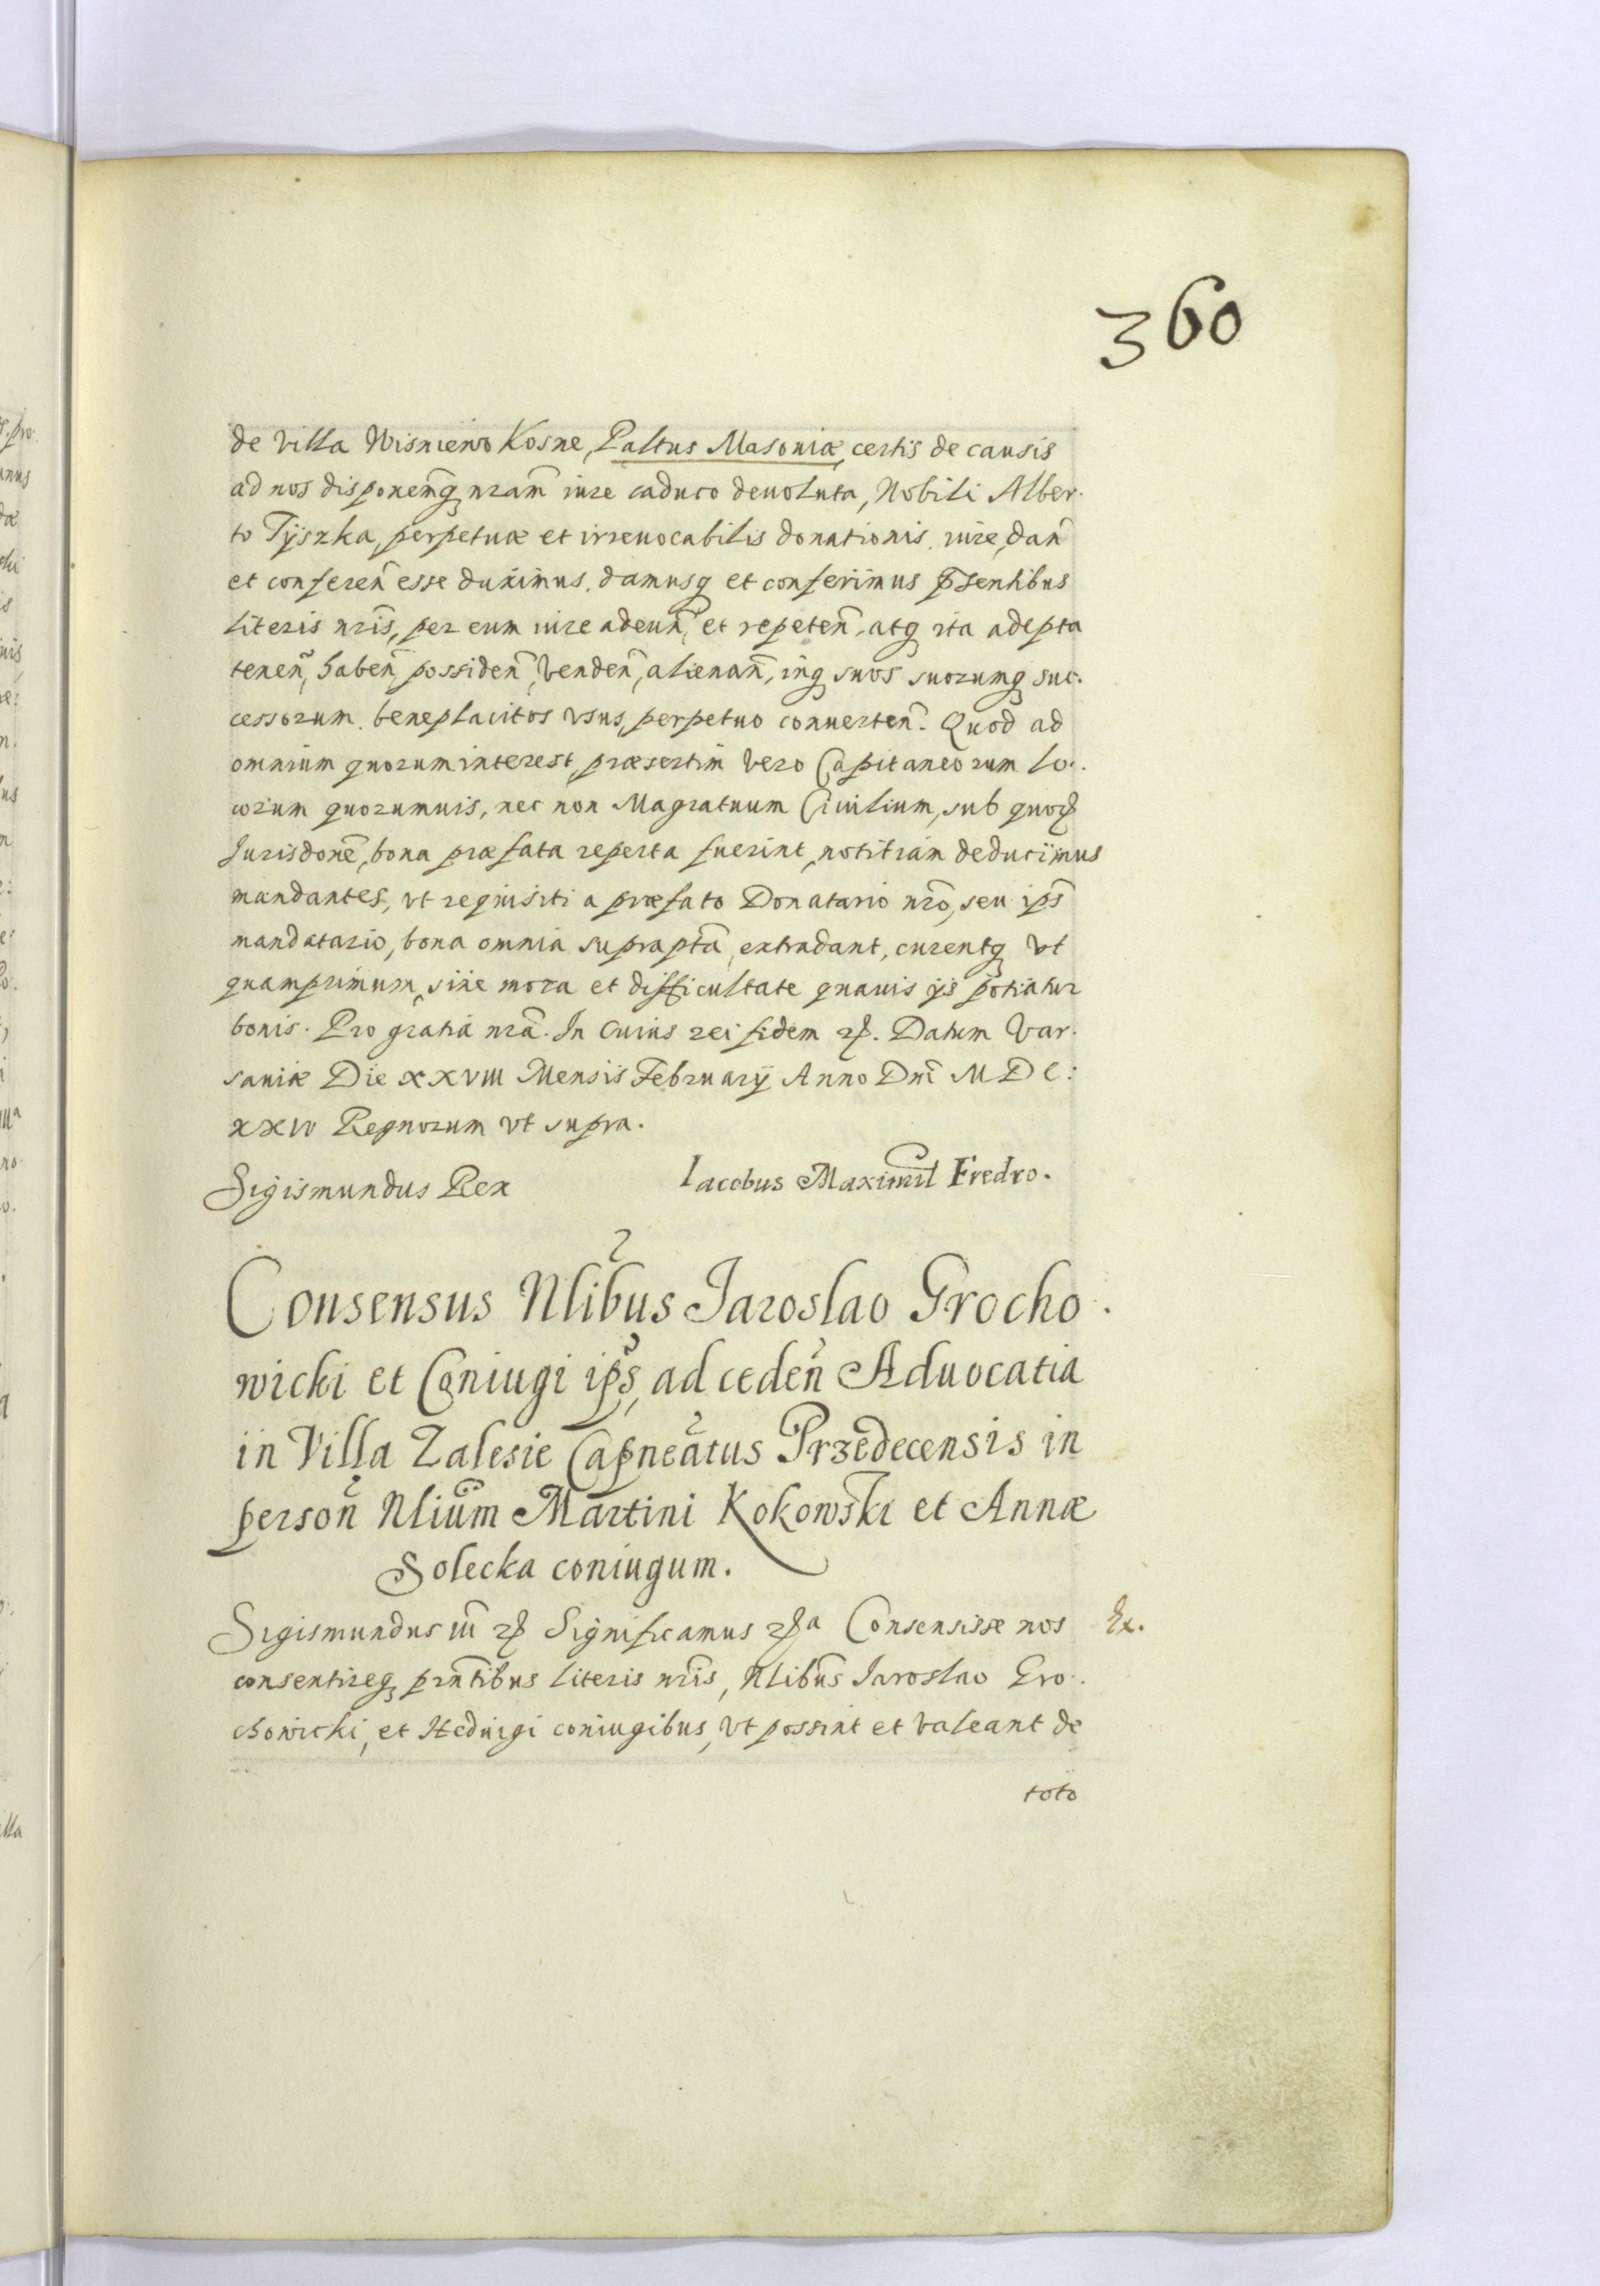 360
de Villa Wisniewo Kosne, Paltus Masoniæ, certis de causis
ad nos disponemq̃ nram̃ iure caduco deuoluta, Nobili Alber-
to Tÿszka, perpetuæ et irreuocabilis donationis iure, dañ
et confereñ esse duximus, damusq̃ et conferimus p̃sentibus
literis nris̃, per eum iure adeuñ, et repeteñ, atq̃ ita adepta
teneñ, habeñ, possideñ, vendeñ, alienañ, inq̃ suos suorumq̃ suc-
cessorum beneplacitos vsus, perpetuo conuerteñ. Quod ad
omnium quorum interest, præsertim vero Capitaneorum lo-
corum quorumuis, nec non Magratuum Ciuilium, sub quoꝝ
Jurisdonẽ, bona præfata reperta fuerint, notitiam deducimus
mandantes, vt requisiti a præfato Donatario nrõ, seu ips̃
mandatario, bona omnia supraptã, extradant, curentq̃ vt
quamprimum, sine mora et difficultate quauis ÿs potiatur
bonis. Pro gratia nrã. In Cuius rei fidem ꝛꝭ. Datum Var-
sauiæ Die XXVIII Mensis Februarÿ Anno Dnĩ MDC:
XXIV Regnorum vt supra.
Sigismundus Rex Iacobus Maximil̃ Fredro.
Consensus Nlibus Jaroslao Grocho-
wicki et Coniugi ips̃, ad cedeñ Aduocatia
in Villa Zalesie Capneatus Przedecensis in
persoñ Nlium̃ Martini Kokowski et Annæ
Solecka coniugum.
Sigismundus III ꝛꝭ Significamus ꝛꝭa Consensisse nos Ex.
consentireq̃ prñtibus literis nris̃, Nlibus̃ Jaroslao Gro-
chowicki, et Heduigi coniugibus, vt possint et valeant de
toto